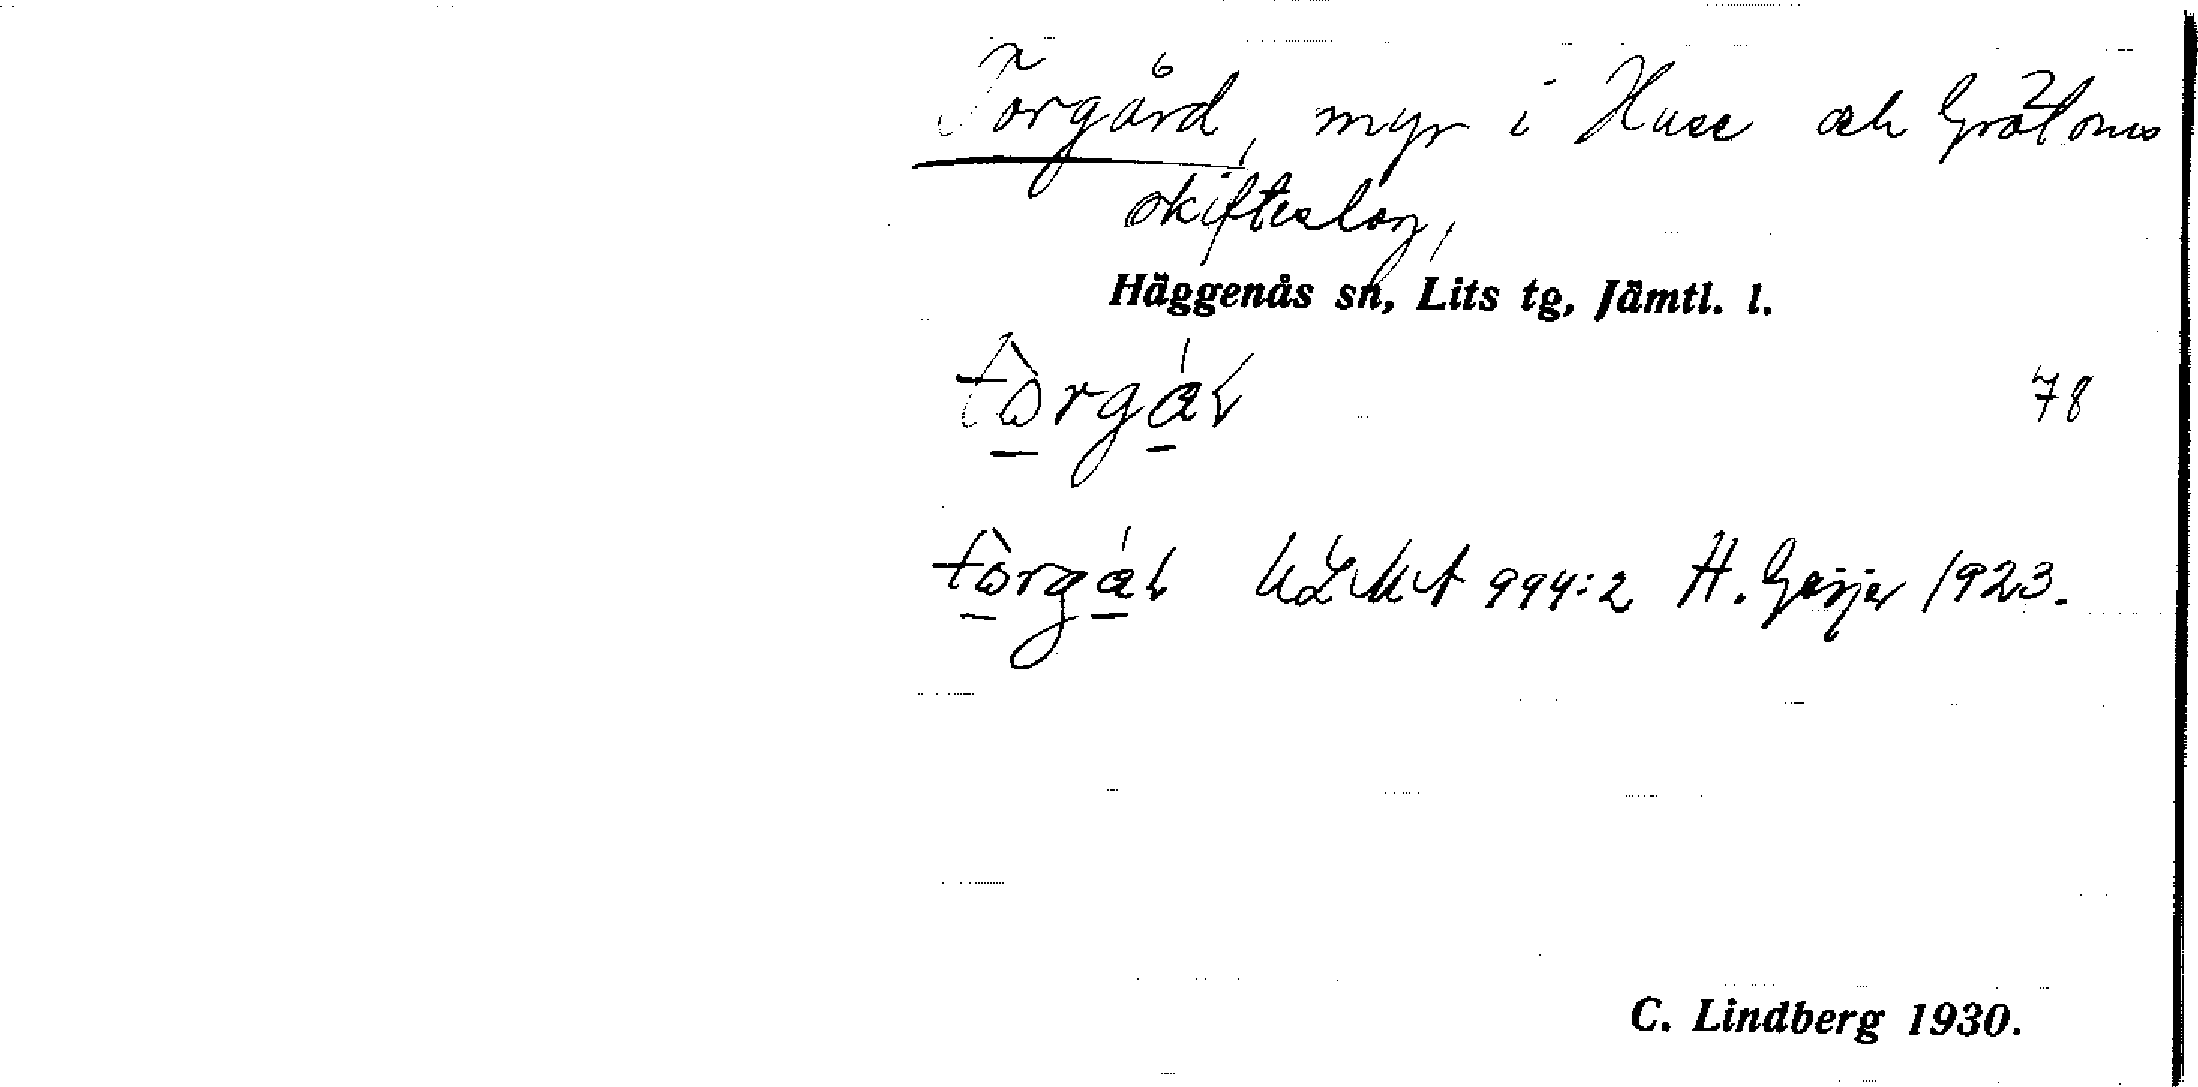 Torgård, myr i Huse och Gråtanäs
skifteslag,
Häggenås sn, Lits tg, Jämtl. l.
tòrgáɽ 78
tòrgáɽ ULMA 994:2 H. Geijer 1923.
C. Lindberg 1930.